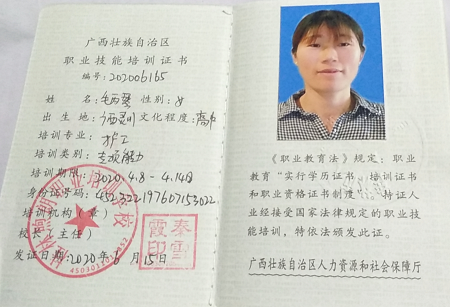 广西壮族自治区
职业技能培训证书
编号:202006165
姓名 性别:女
出生地:广西灵川 文化程度:高中
培训专业:护工
培训类别:专项能力
培训期限:2020.4.8-4.14日
身份证号码:452322197607153022
培训机构(章)
校长(主任)
发证日期:2020年6月15日
秦雪霞印
4503010
《职业教育法》规定:职业
教育“实行学历证书、培训证书
和职业资格证书制度”。持证人
业经接受国家法律规定的职业技
能培训,特依法颁发此证。
广西壮族自治区人力资源和社会保障厅